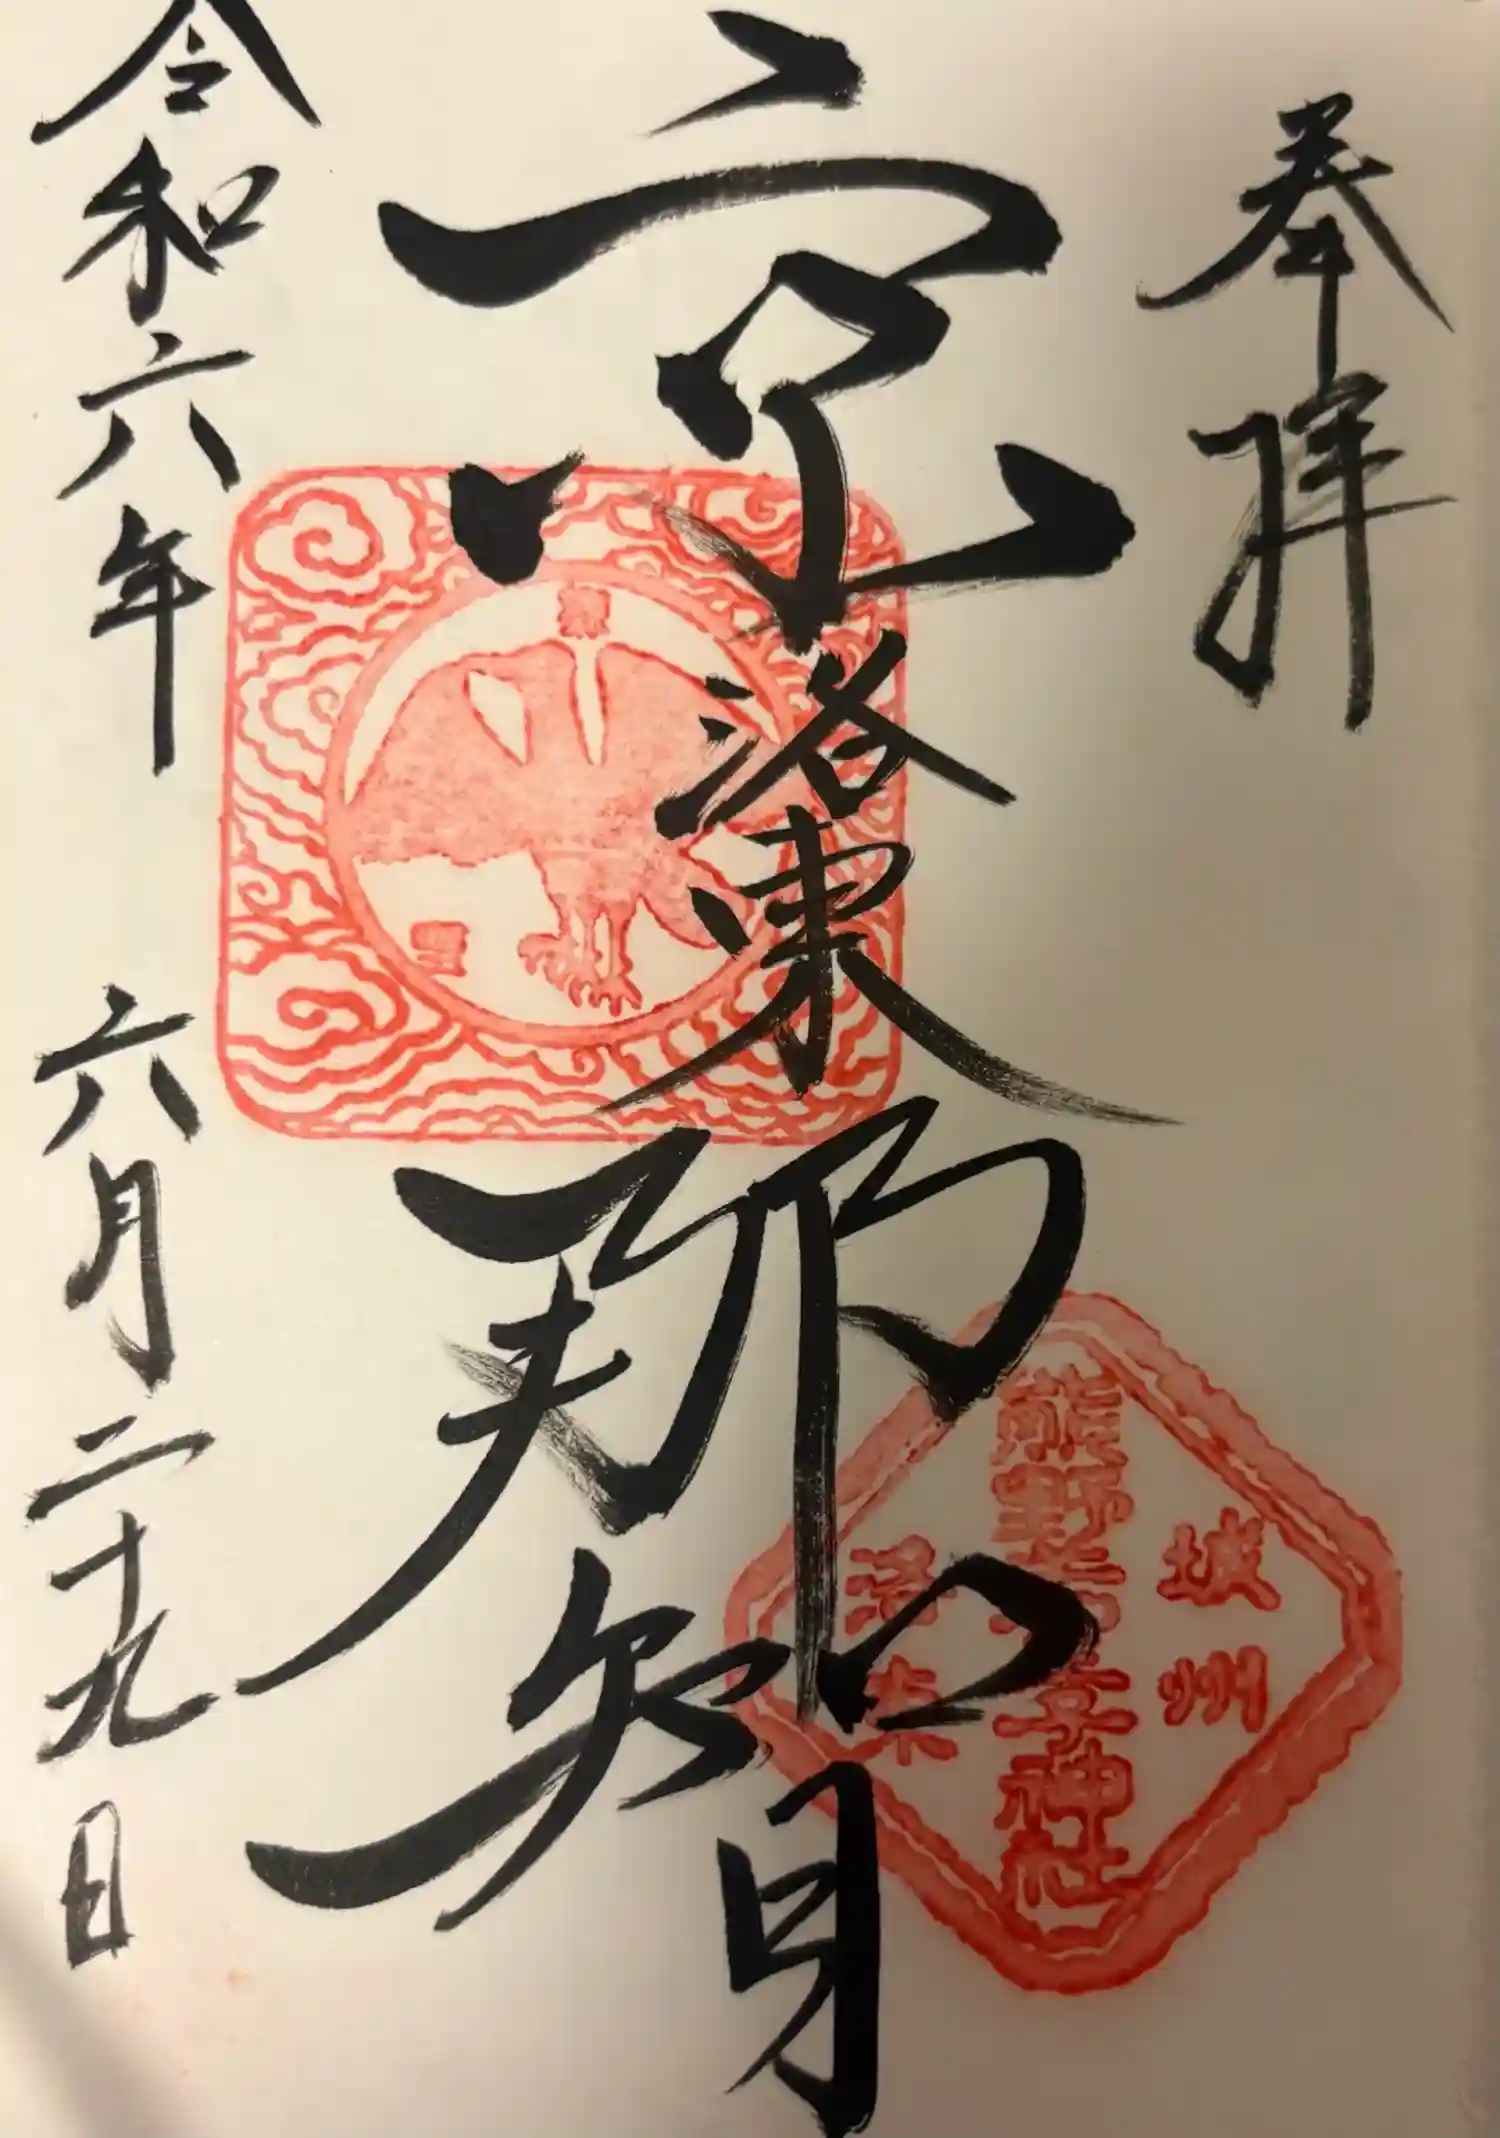 奉拝
京
洛東
那智
令和六年 六月二十九日
熊野若王子神社
城州
洛東